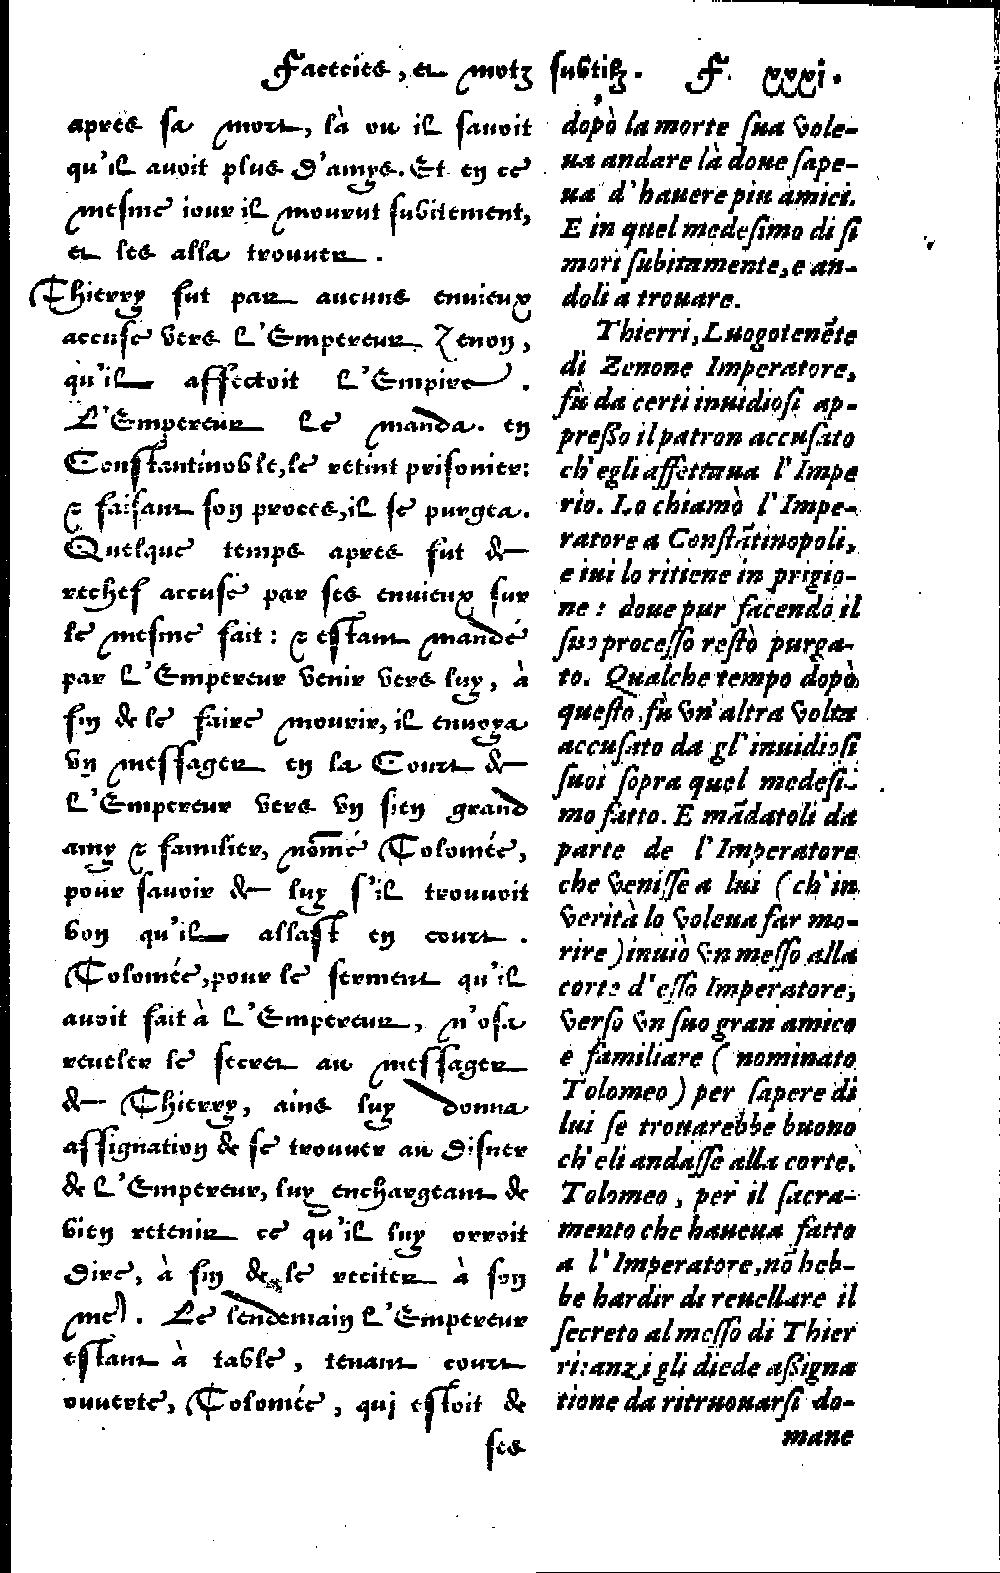 Facecies, et motz subtilz. F. xxxi.
apres sa mort, là ou il savoit
qu'il avoit plus d'amys. Et en ce
mesme iour il mourut subitement,
et les alla trouver.
Thierry fut par aucuns envieux
accusé vers L'Empereur Zenon,
qu'il affectoit L'Empire.
L'Empereur le manda en
Constantinoble, le retint prisonier:
& faisant son proces, il se purgea.
Quelque temps apres fut de
rechef accusé par ses envieux sur
le mesme fait: & estant mandé
par L'Empereur venir vers luy, à
fin de le faire mourir, il envoya
vn messager en la Court de
L'Empereur vers vn sien grand
amy & familier, nõmé Tolomée,
pour savoir de luy s'il trouvoit
bon qu'il allast en court.
Tolomée, pour le serment qu'il
avoit fait à L'Empereur, n'osa
reveler le secret au messager
de Thierry, ains luy donna
assignation de se trouver au disner
de L'Empereur, luy enchargeant de
bien retenir ce qu'il luy orroit
dire, à fin de le reciter à son
me). Le lendemain L'Empereur
estant à table, tenant court
ouverte, Tolomée, qui estoit de
ses
dopò la morte sua vole-
ua andare là doue sape-
ua d'hauere piu amici.
E in quel medesimo di si
mori subitamente, e an-
doli a trouare.
Thierri, Luogotenẽte
di Zenone Imperatore,
fù da certi inuidiosi ap-
presso il patron accusato
ch'egli affettaua l'Impe
rio. Lo chiamò l'Impe-
ratore a Constãtinopoli,
e iui lo ritiene in prigio-
ne: doue pur facendo il
suo processo restò purga-
to. Qualche tempo dopò
questo fù vn'altra volta
accusato da gl'inuidiosi
suoi sopra quel medesi-
mo fatto. E mãdatoli da
parte de l'Imperatore
che venisse a lui (ch'in
verità lo voleua far mo-
rire) inuiò vn messo alla
corte d'esso Imperatore,
verso vn suo gran amico
e familiare (nominato
Tolomeo) per sapere di
lui se trouarebbe buono
ch'eli andasse alla corte.
Tolomeo, per il sacra-
mento che haueua fatto
a l'Imperatore, nõ heb-
be hardir di reuellare il
secreto al messo di Thier
ri: anzi gli diede assigna
tione da ritruouarsi do-
mane